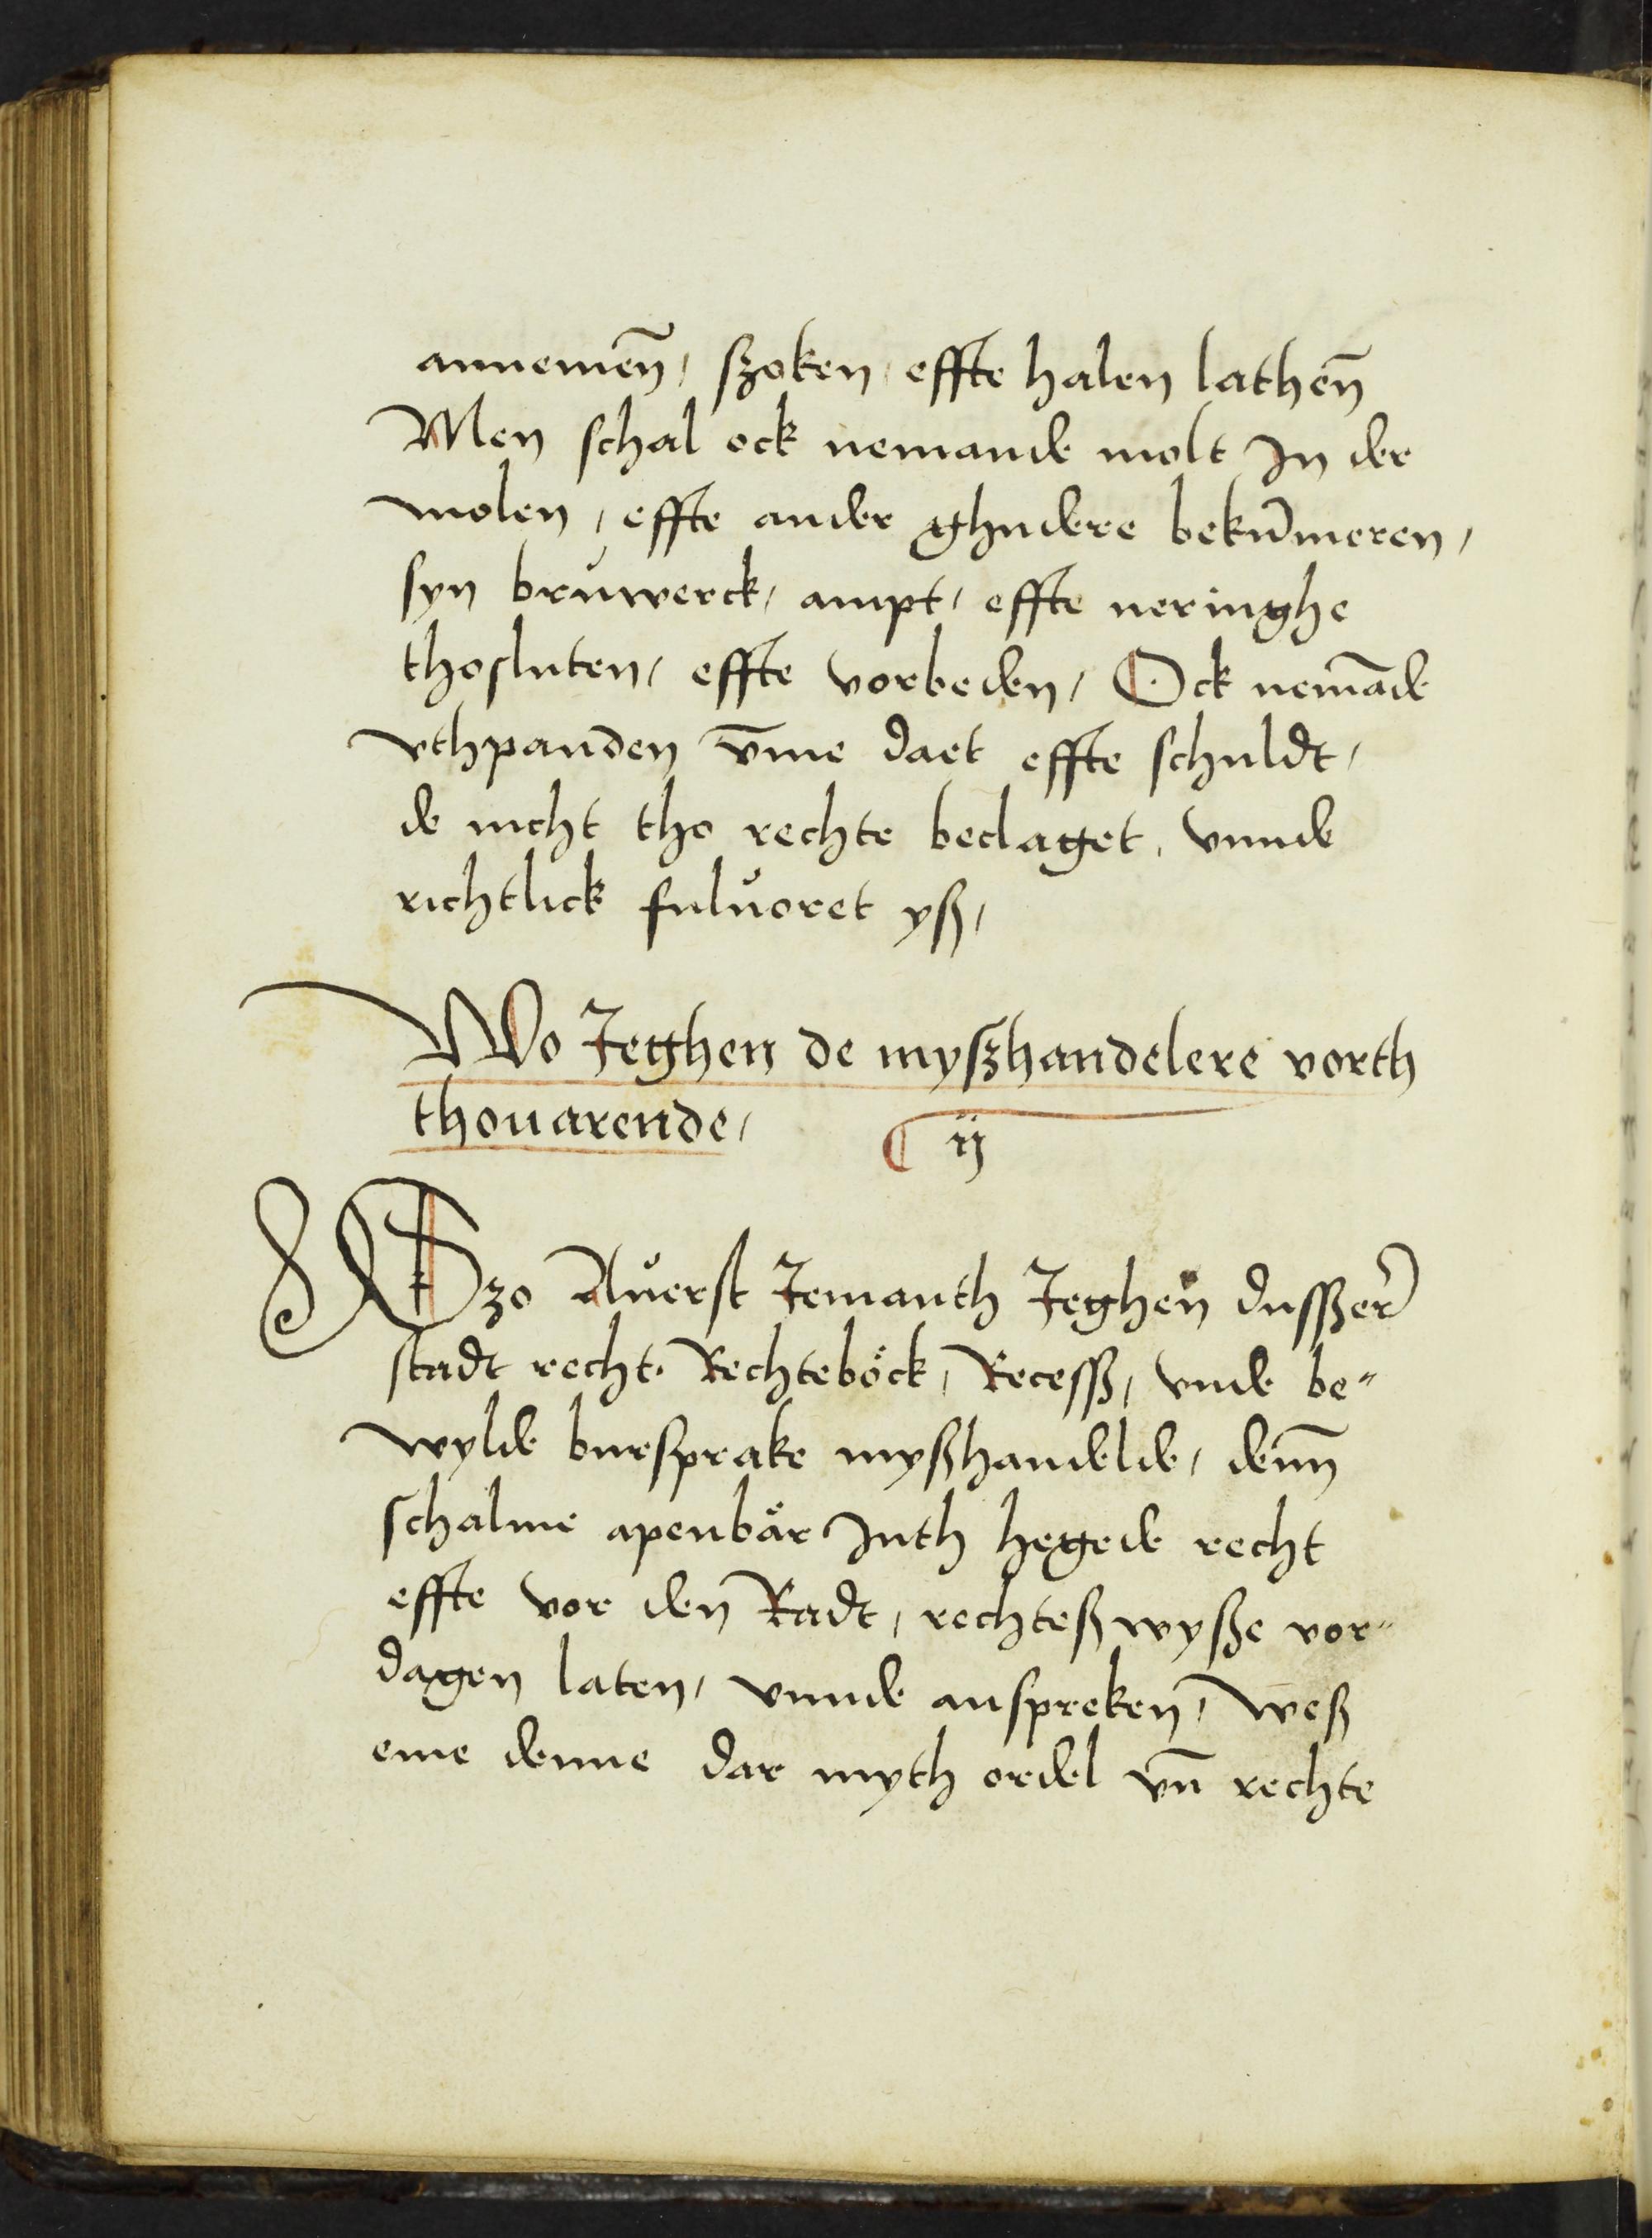 annemen̄, szoken, effte halen lathen̄
Men schal ock nemande molt In der
molen, effte ander ghudere bekūmeren,
syn brůwerck, ampt, effte neringhe
thosluten, effte vorbeden, Ock nemāde
vthpanden v̄me daet effte schuldt,
de nicht tho rechte beclaget, vnnde
richtlick fuluöret yß,
Wo Jeghen de myßhandelere vorth
thouarende, ij
Szo Auerst Jemanth Jeghen dusszer
stadt recht, Rechteböck, Recessß, vnde be-
wylde bursprake myßhandelde, denn̄
schalme apenbär Inth hegede recht
effte vor den Radt, rechteß wyße vor-
dagen laten, vnnde anspreken, weß
eme denne dar myth ordel vn̄ rechte